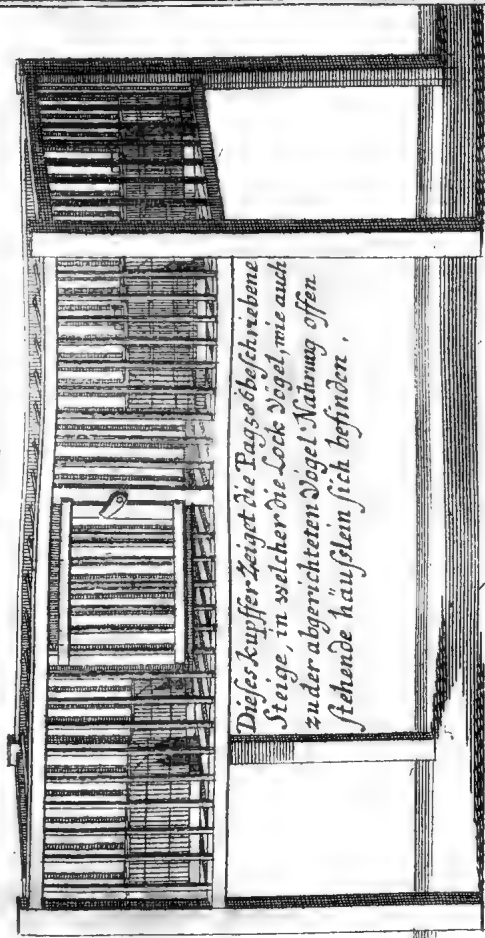 Dieses kupffer Zeiget die Pag: 506 beschriebene
Steige, in welcher die Lock Vögel, wie auch
zu der abgerichteten Vögel Nahrung offen
stehende häußlein sich befinden.